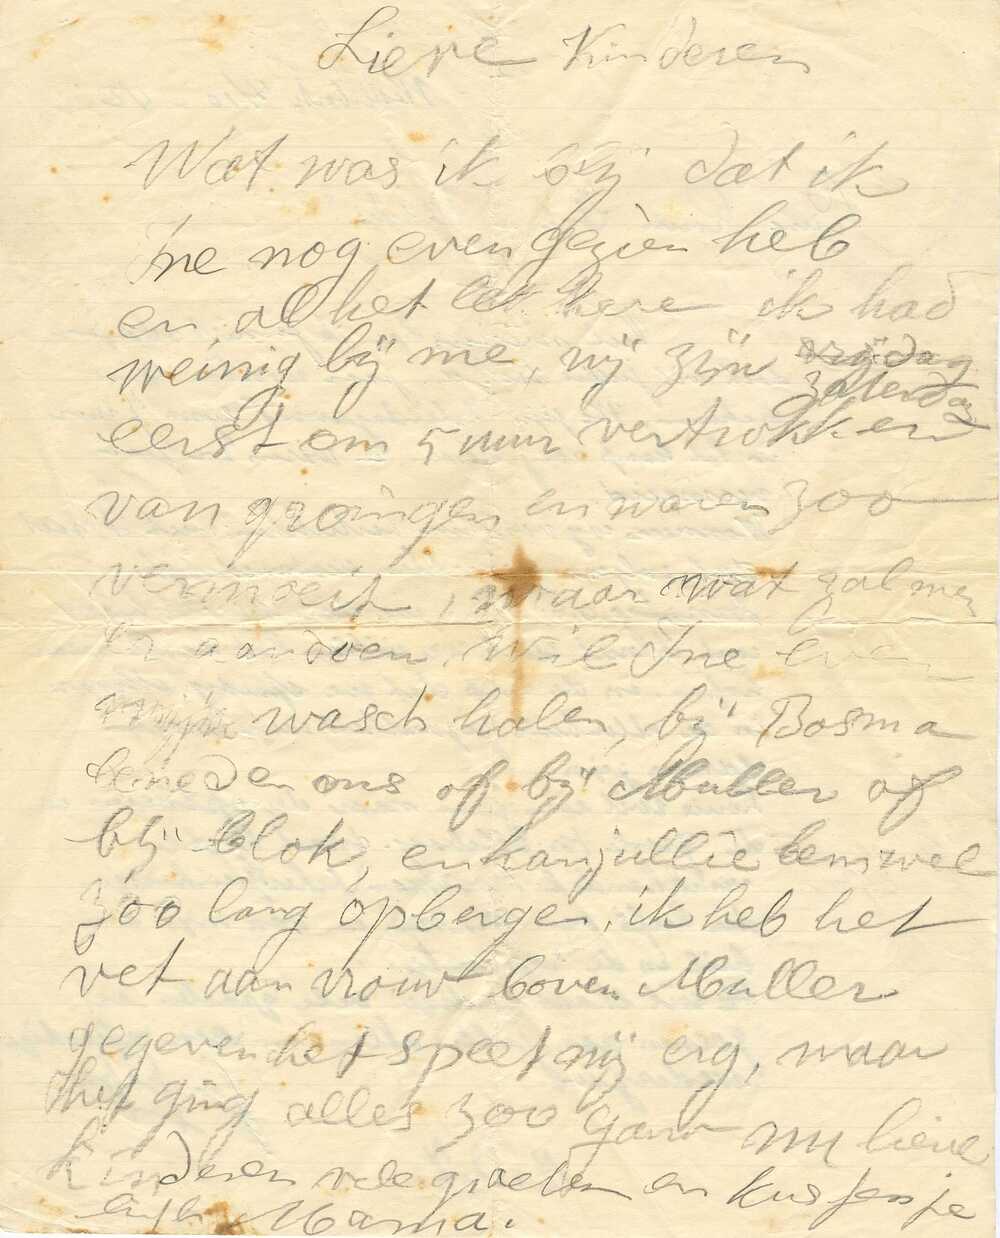 Lieve Kinderen
Wat was ik blij dat ik
Ine nog even gezien heb
en al het lekkere ik had
weinig bij me, wij zijn vrijdag
zaterdag
eerst om 5 uur vertrokken
van groingen en waren zoo
vermoeit, maar wat zal men
er aandoen, wil Ine even
mijn wasch halen, bij Bosma
beneden ons of bij Muller of
bij blok, en kan jullie hem wel
zoo lang opbergen, ik heb het
vet aan vrouw boven Muller
gegeven het speet mij erg, maar
het ging alles zoo gauw nu lieve
kinderen vele groeten en kusjes je
Mama.